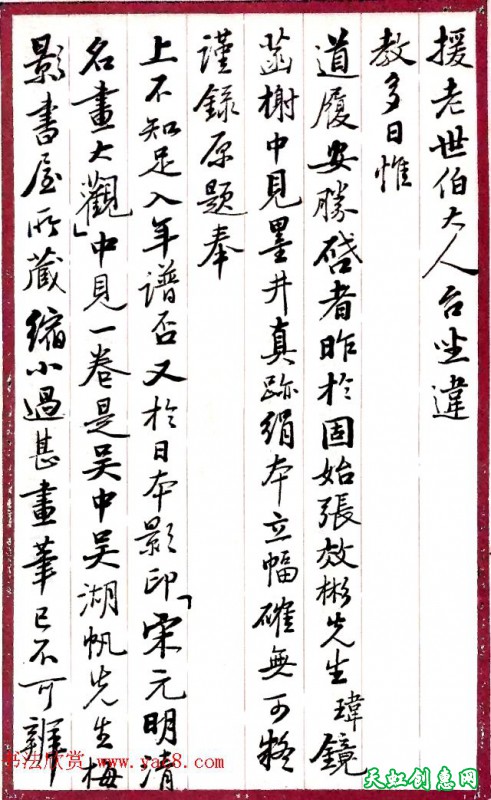 援老世伯大人台坐違
教多日惟
道履安勝啓者昨於固始張效彬先生瑋鏡
菡榭中見墨井真跡絹本立幅確無可疑
謹錄原題奉
上不知足入年譜否又於日本影印「宋元明清
名畫大觀」中見一卷是吳中吳湖帆先生梅
影書屋所藏縮小過甚畫筆已不可辨
书法欣赏 www.yac8.com
天虹创意网